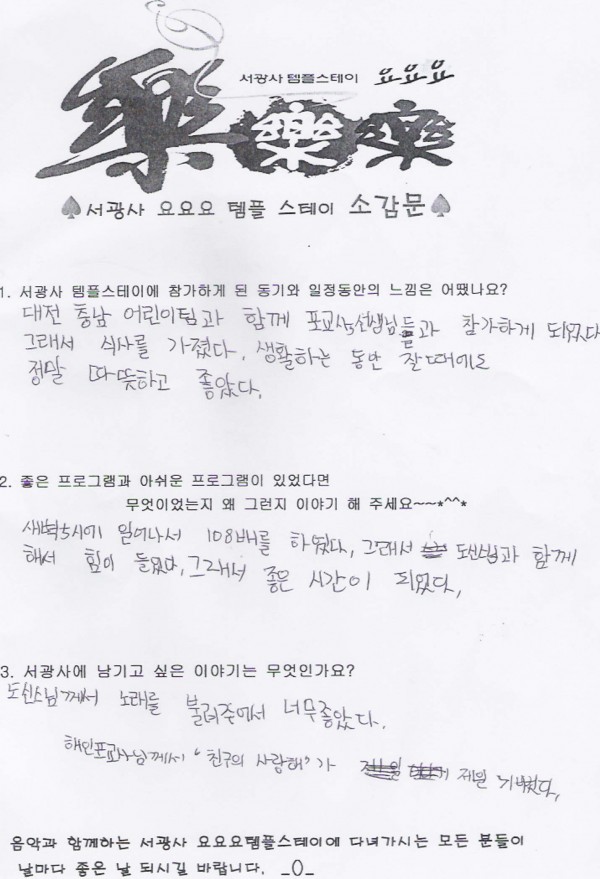 서광사 템플스테이 요요요
樂樂樂
서광사 요요요 템플 스테이 소감문
1. 서광사 템플스테이에 참가하게 된 동기와 일정동안의 느낌은 어땠나요?
대전 충남 어린이팀과 함께 포교사선생님들과 참가하게 되었다
그래서 식사를 가졌다. 생활하는 동안 잘때에도
정말 따뜻하고 좋았다.
2. 좋은 프로그램과 아쉬운 프로그램이 있었다면
무엇이었는지 왜 그런지 이야기 해 주세요~~*^^*
새벽5시에 일어나서 108배를 하였다, 그래서 도신스님과 함께
해서 힘이 들었다, 그래서 좋은 시간이 되었다,
3. 서광사에 남기고 싶은 이야기는 무엇인가요?
도신스님께서 노래를 불러주어서 너무좋았다.
해인포교사님께서 "친구의 사랑해"가 제일 기뻤다,
음악과 함께하는 서광사 요요요템플스테이에 다녀가시는 모든 분들이
날마다 좋은 날 되시길 바랍니다. _()_